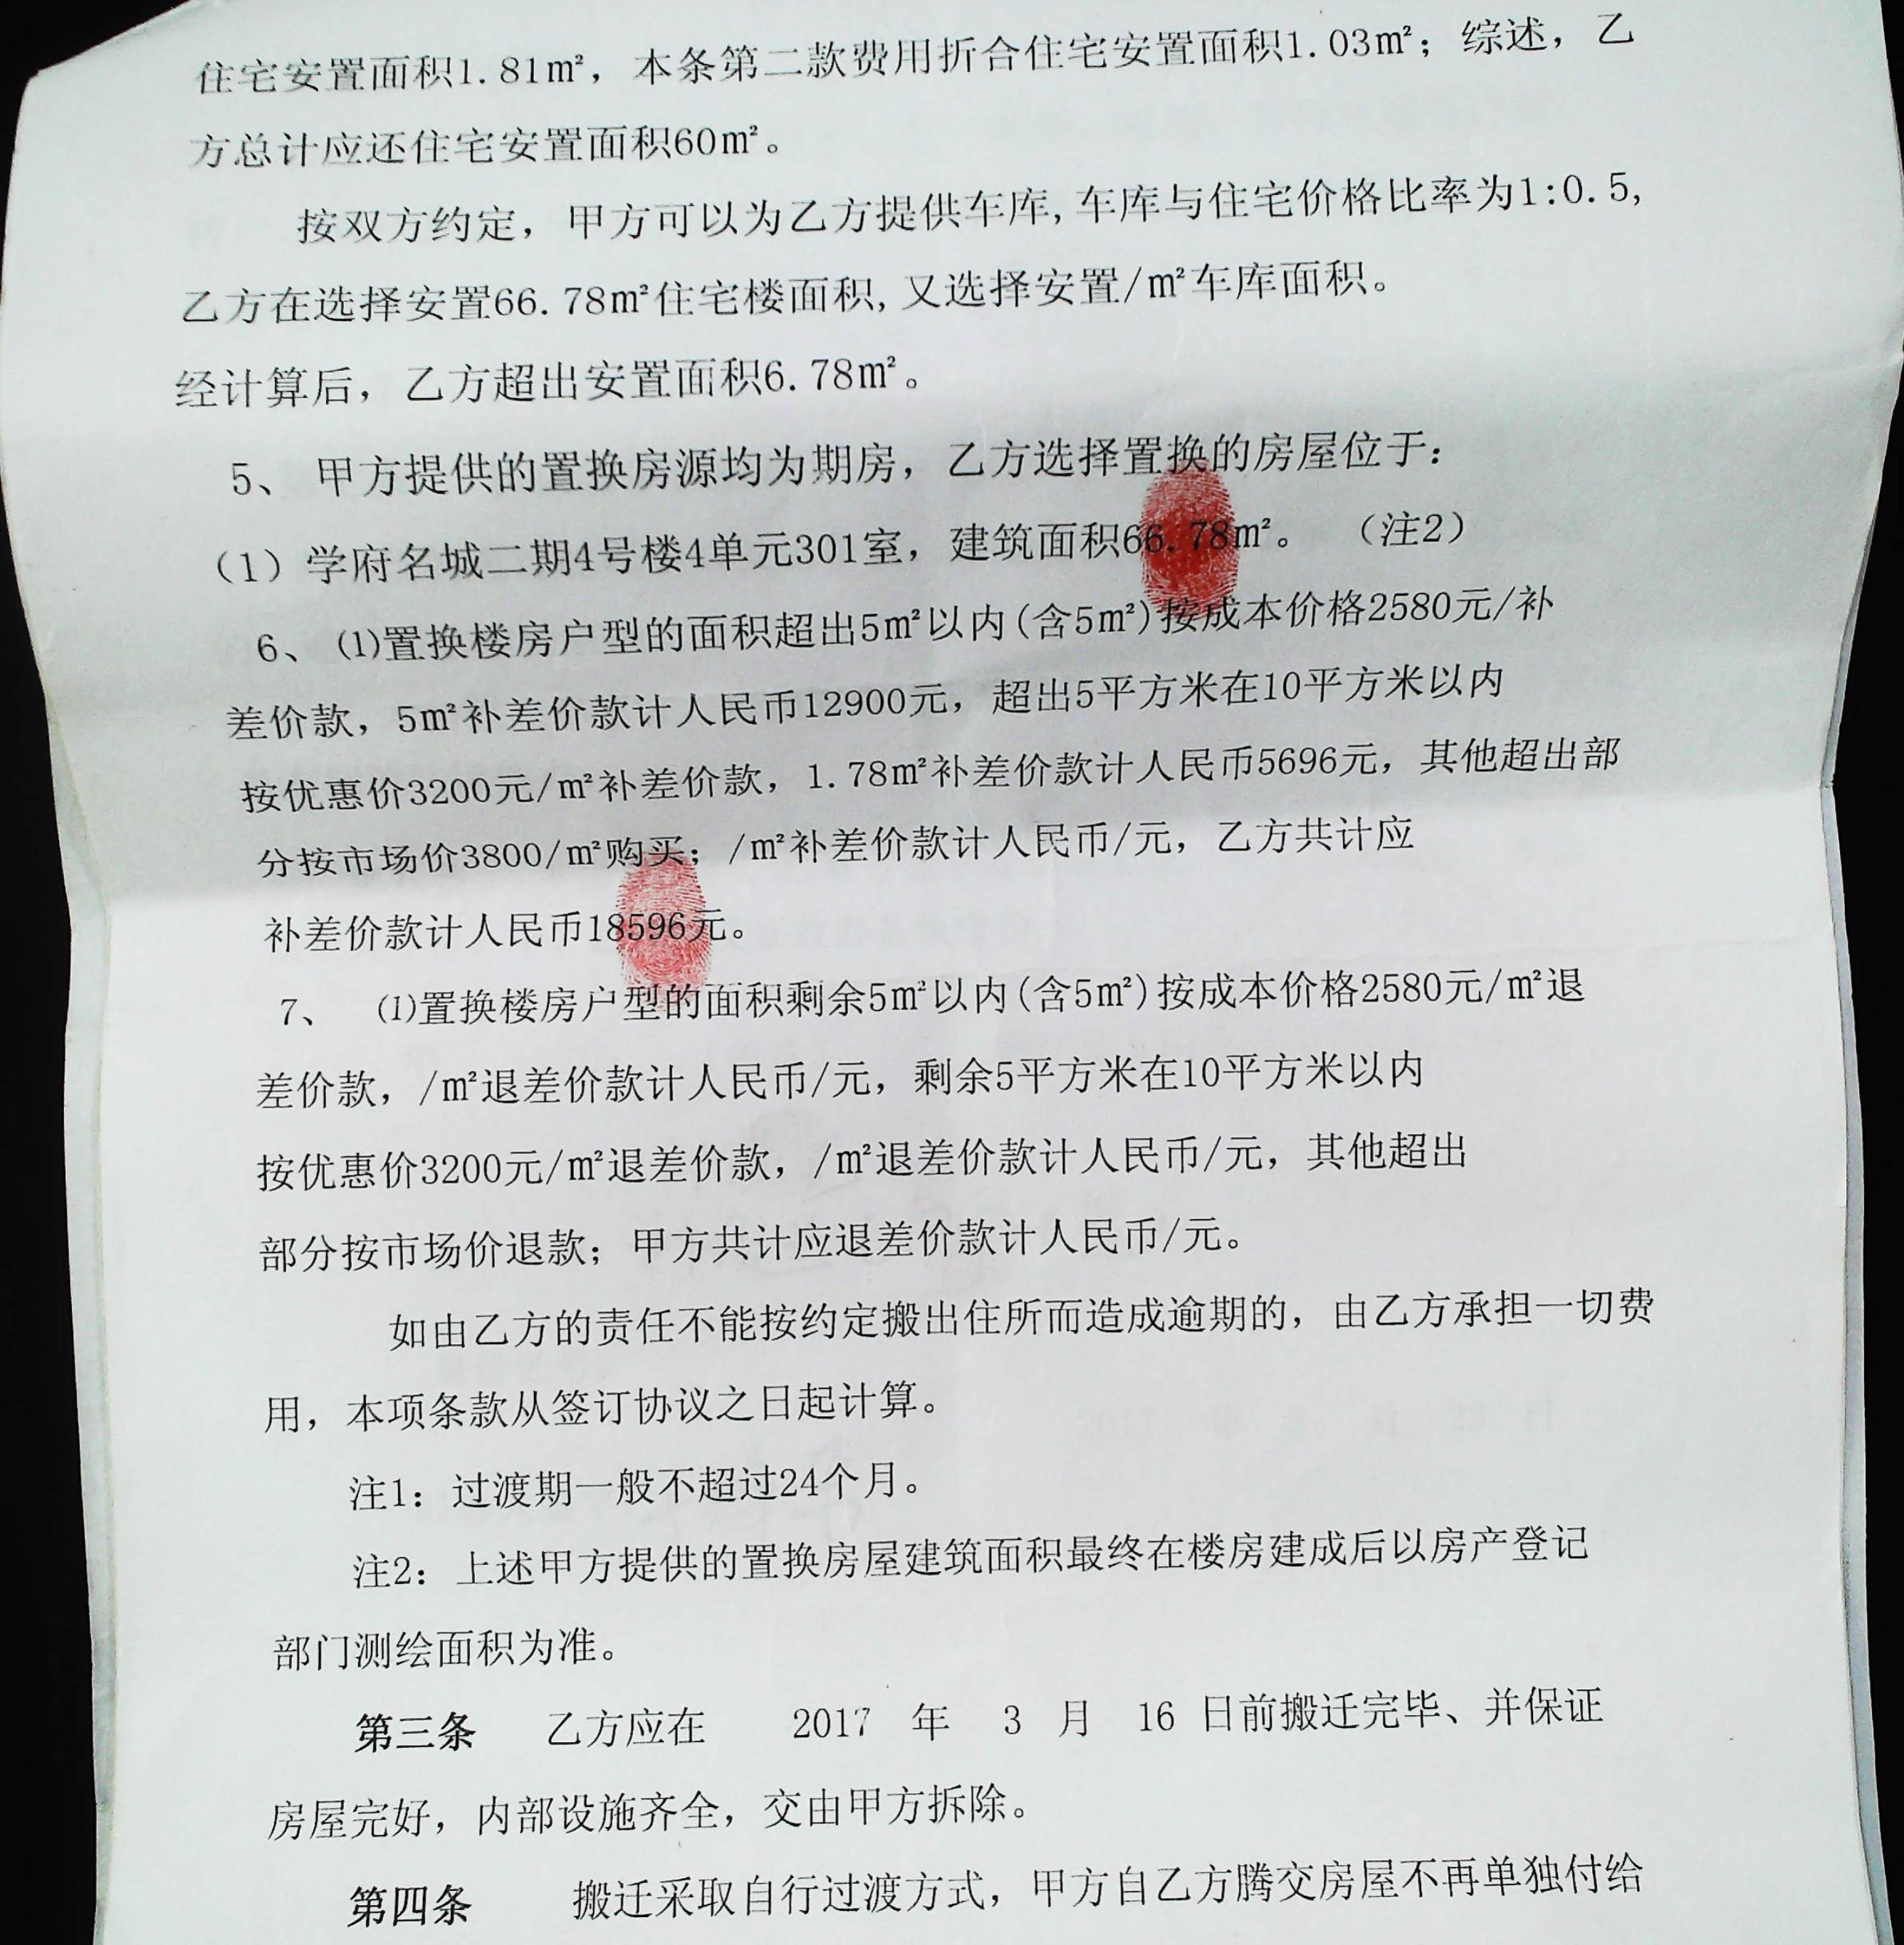 住宅安置面积1.81m²，本条第二款费用折合住宅安置面积1.03m²；综述，乙
方总计应还住宅安置面积60m²。
按双方约定，甲方可以为乙方提供车库,车库与住宅价格比率为1:0.5,
乙方在选择安置66.78m²住宅楼面积,又选择安置/m²车库面积。
经计算后，乙方超出安置面积6.78m²。
5、 甲方提供的置换房源均为期房，乙方选择置换的房屋位于：
（1）学府名城二期4号楼4单元301室，建筑面积66.78m²。 （注2）
6、⑴置换楼房户型的面积超出5m²以内(含5m²)按成本价格2580元/补
差价款，5m²补差价款计人民币12900元，超出5平方米在10平方米以内
按优惠价3200元/m²补差价款，1.78m²补差价款计人民币5696元，其他超出部
分按市场价3800/m²购买；/m²补差价款计人民币/元，乙方共计应
补差价款计人民币18596元。
7、 ⑴置换楼房户型的面积剩余5m²以内(含5m²)按成本价格2580元/m²退
差价款，/m²退差价款计人民币/元，剩余5平方米在10平方米以内
按优惠价3200元/m²退差价款，/m²退差价款计人民币/元，其他超出
部分按市场价退款；甲方共计应退差价款计人民币/元。
如由乙方的责任不能按约定搬出住所而造成逾期的，由乙方承担一切费
用，本项条款从签订协议之日起计算。
注1：过渡期一般不超过24个月。
注2：上述甲方提供的置换房屋建筑面积最终在楼房建成后以房产登记
部门测绘面积为准。
第三条 乙方应在 2017 年 3 月 16 日前搬迁完毕、并保证
房屋完好，内部设施齐全，交由甲方拆除。
第四条 搬迁采取自行过渡方式，甲方自乙方腾交房屋不再单独付给